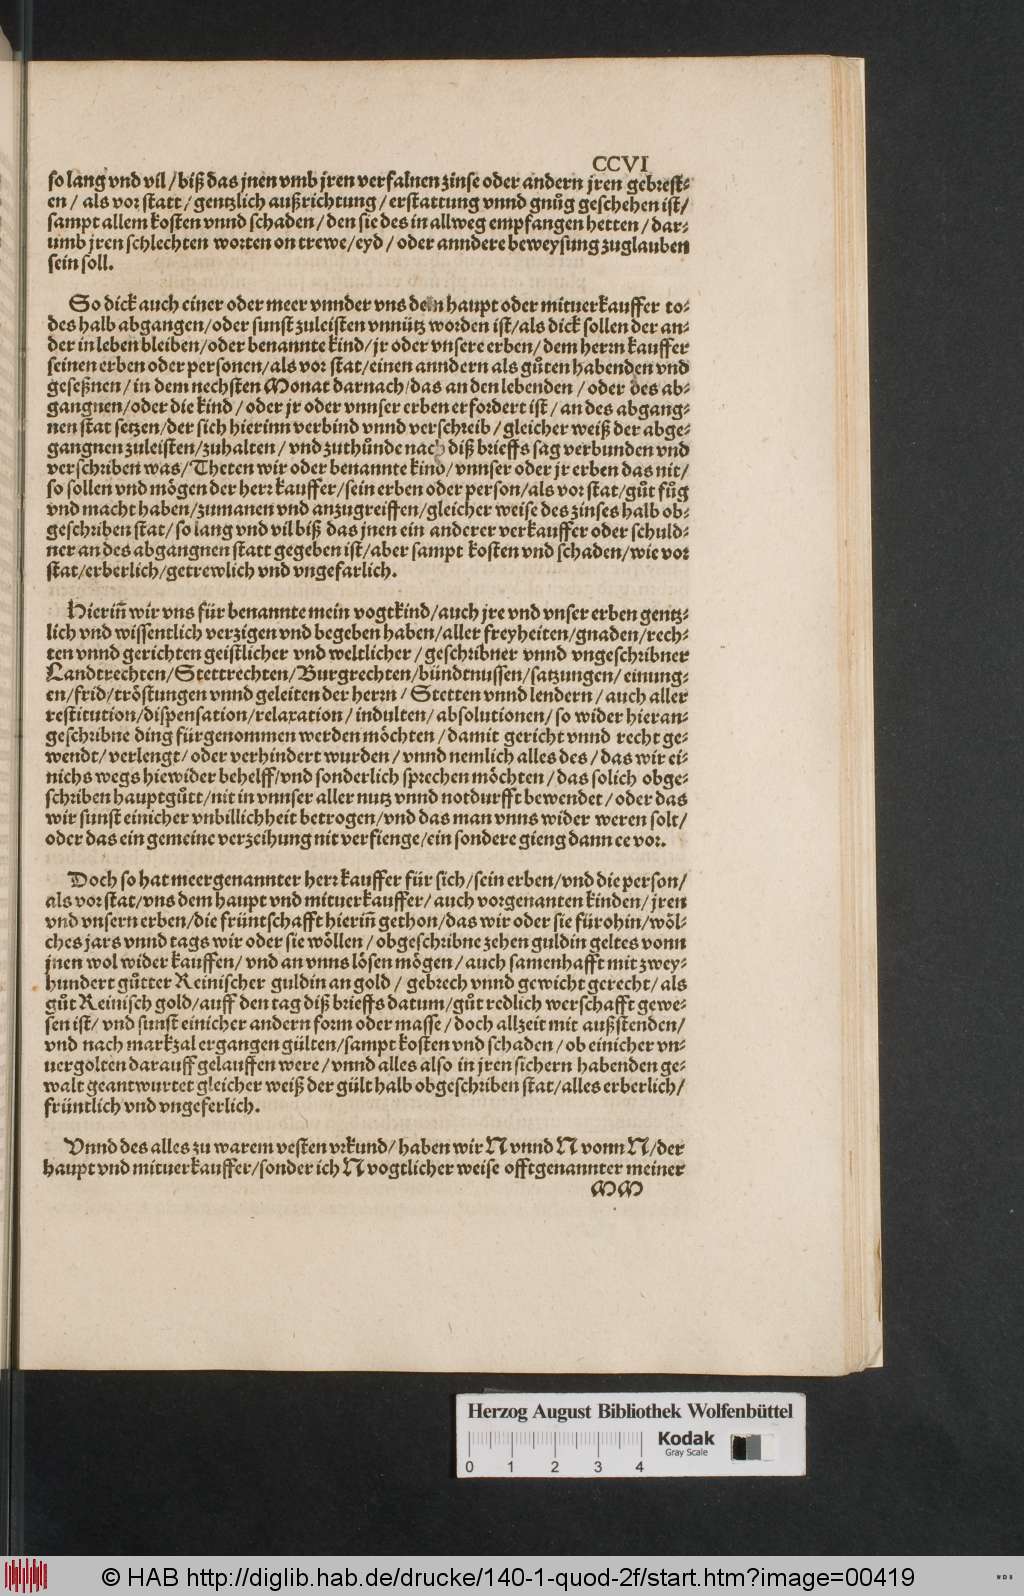 CCVI
so lang vnd vil / biß das jnen vmb jren verfalnen zinse oder andern jren gebrest⸗
en / als vor statt / gentzlich außrichtung / erstattung vnnd gnůg geschehen ist/
sampt allem kosten vnnd schaden / den sie des in allweg empfangen hetten / dar⸗
umb jren schlechten worten on trewe/eyd / oder anndere beweysung zuglauben
sein soll.
So dick auch einer oder meer vnnder vns dem haupt oder mituerkauffer to⸗
des halb abgangen/oder sunst zuleisten vnnütz worden ist/als dick sollen der an⸗
der in leben bleiben/oder benannte kind/jr oder vnsere erben/dem herrn kauffer
seinen erben oder personen/als vor stat/einen anndern als gůten habenden vnd
geseßnen / in dem nechsten Monat darnach/das an den lebenden / oder des ab⸗
gangnen/oder die kind / oder jr oder vnnser erben erfordert ist / an des abgang⸗
nen stat setzen/der sich hierinn verbind vnnd verschreib / gleicher weiß der abge⸗
gangnen zuleisten/zuhalten / vnd zuthůnde nach diß brieffs sag verbunden vnd
verschriben was/Theten wir oder benannte kind/vnnser oder jr erben das nit/
so sollen vnd mögen der herr kauffer/sein erben oder person/als vor stat/gůt fůg
vnd macht haben/zumanen vnd anzugreiffen/gleicher weise des zinses halb ob⸗
geschriben stat/so lang vnd vil biß das jnen ein anderer verkauffer oder schuld⸗
ner an des abgangnen statt gegeben ist/aber sampt kosten vnd schaden/wie vor
stat/erberlich/getrewlich vnd vngefarlich.
Hieriñ wir vns für benannte mein vogtkind/auch jre vnd vnser erben gentz⸗
lich vnd wissentlich verzigen vnd begeben haben/aller freyheiten/gnaden/rech⸗
ten vnnd gerichten geistlicher vnd weltlicher / geschribner vnnd vngeschribner
Landtrechten/Stettrechten/Burgrechten/bündtnussen/satzungen/einung⸗
en/frid/tröstungen vnnd geleiten der herrn / Stetten vnnd lendern / auch aller
restitution/dispensation/relaxation / indulten/absolutionen/so wider hieran⸗
geschribne ding fürgenommen werden möchten / damit gericht vnnd recht ge⸗
wendt/verlengt/oder verhindert wurden / vnnd nemlich alles des / das wir ei⸗
nichs wegs hiewider behelff/vnd sonderlich sprechen möchten/das solich obge⸗
schriben hauptgůtt/nit in vnnser aller nutz vnnd notdurfft bewendet/oder das
wir sunst einicher vnbillichheit betrogen/vnd das man vnns wider weren solt/
oder das ein gemeine verzeihung nit verfienge/ein sondere gieng dann ee vor.
Doch so hat meergenannter herr kauffer für sich/sein erben/vnd die person/
als vor stat/vns dem haupt vnd mituerkauffer/auch vorgenanten kinden/jren
vnd vnsern erben/die früntschafft hieriñ gethon/das wir oder sie fürohin/wöl⸗
ches jars vnnd tags wir oder sie wöllen / obgeschribne zehen guldin geltes vonn
jnen wol wider kauffen/ vnd an vnns lösen mögen / auch samenhafft mit zwey⸗
hundert gůtter Reinischer guldin an gold / gebrech vnnd gewicht gerecht/als
gůt Reinisch gold/auff den tag diß brieffs datum/gůt redlich werschafft gewe⸗
sen ist/ vnd sunst einicher andern form oder masse / doch allzeit mit außstenden/
vnd nach markzal ergangen gülten/sampt kosten vnd schaden / ob einicher vn⸗
uergolten darauff gelauffen were / vnnd alles also in jren sichern habenden ge⸗
walt geantwurtet gleicher weiß der gült halb obgeschriben stat/alles erberlich/
früntlich vnd vngeferlich.
Vnnd des alles zu warem vesten vrkund/haben wir N vnnd N vonn N/der
haupt vnd mituerkauffer/sonder ich N vogtlicher weise offtgenannter meiner
MM
Herzog August Bibliothek Wolfenbüttel
Kodak
Gray Scale
0 1 2 3 4
© HAB http://diglib.hab.de/drucke/140-1-quod-2f/start.htm?image=00419